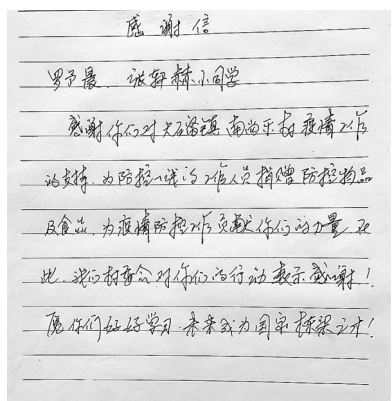 感谢信
罗予晨、张轩赫小同学
感谢你们对大石窝镇南尚乐村疫情工作
的支持，为防控一线的工作人员捐赠防控物品
及食品，为疫情防控工作贡献你们的力量，在
此，我们村委会对你们的行动表示感谢！
愿你们好好学习，未来成为国家栋梁之才！